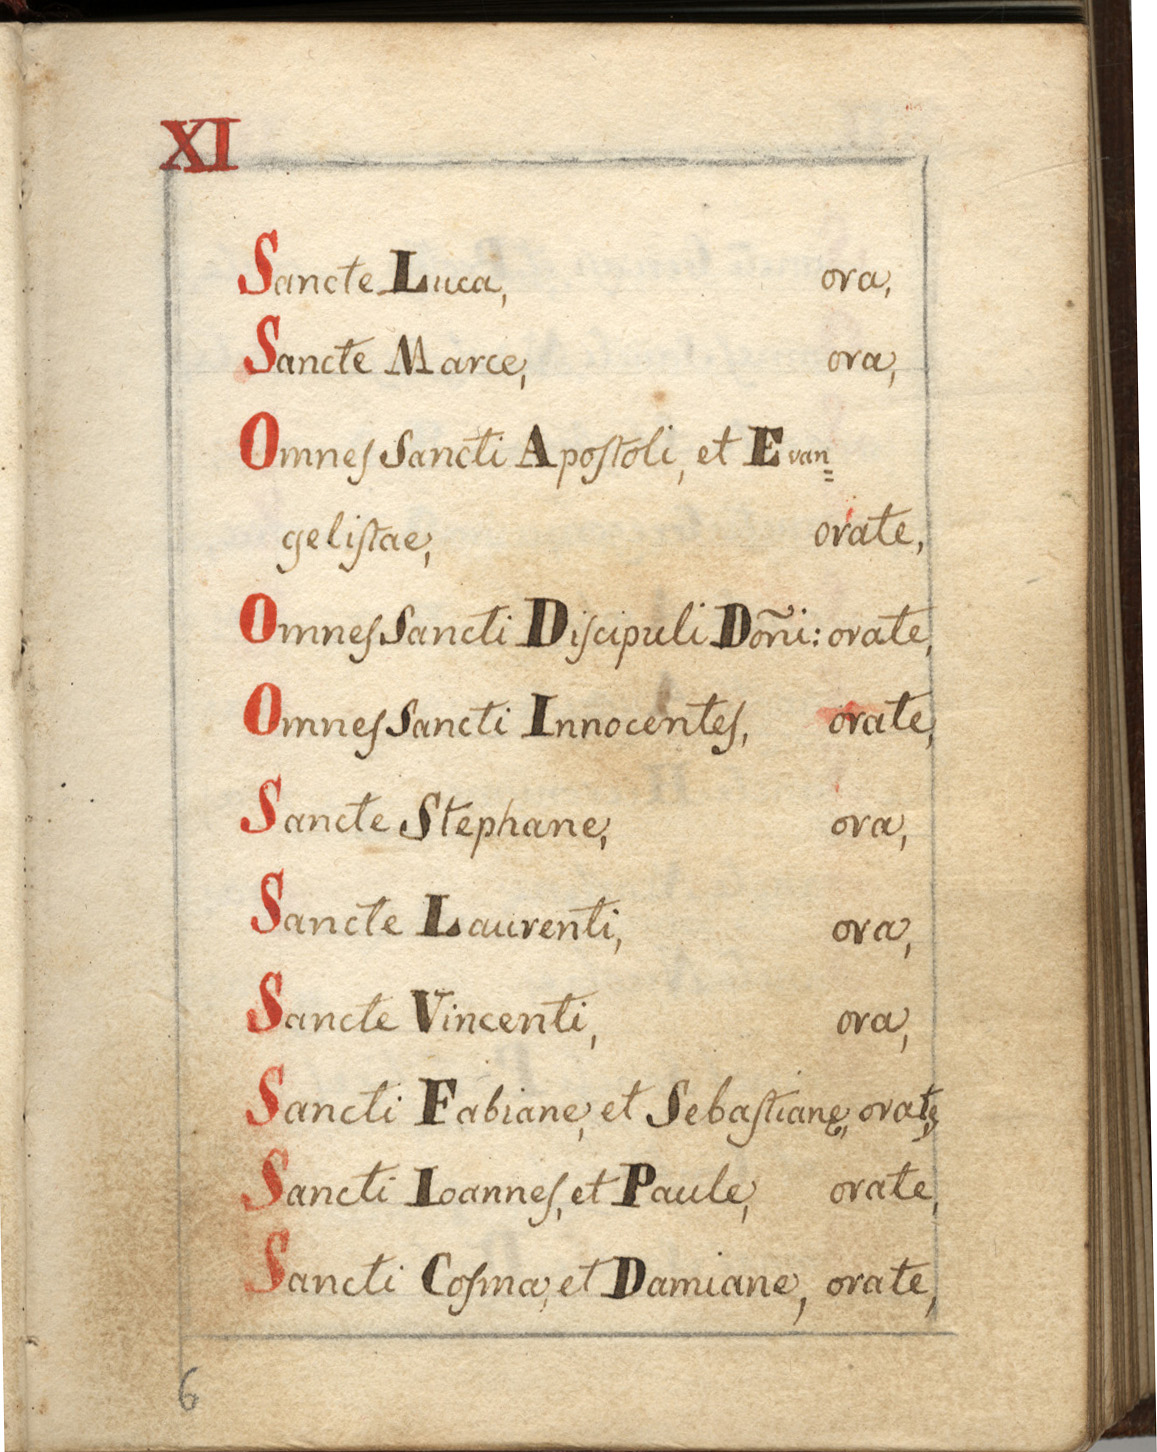 XI
Sancte Luca, ora,
Sancte Marce, ora,
Omneſ Sancti Apoſtoli, et Evan=
geliſtae, orate,
Omneſ Sancti Diſcipuli Dom̃i: orate,
Omneſ Sancti Innocenteſ, orate,
Sancte Stephane, ora,
Sancte Laurenti, ora,
Sancte Vincenti, ora,
Sancti Fabiane, et Sebaſtiane, orate,
Sancti Ioanneſ, et Paule, orate,
Sancti Coſma, et Damiane, orate,
6